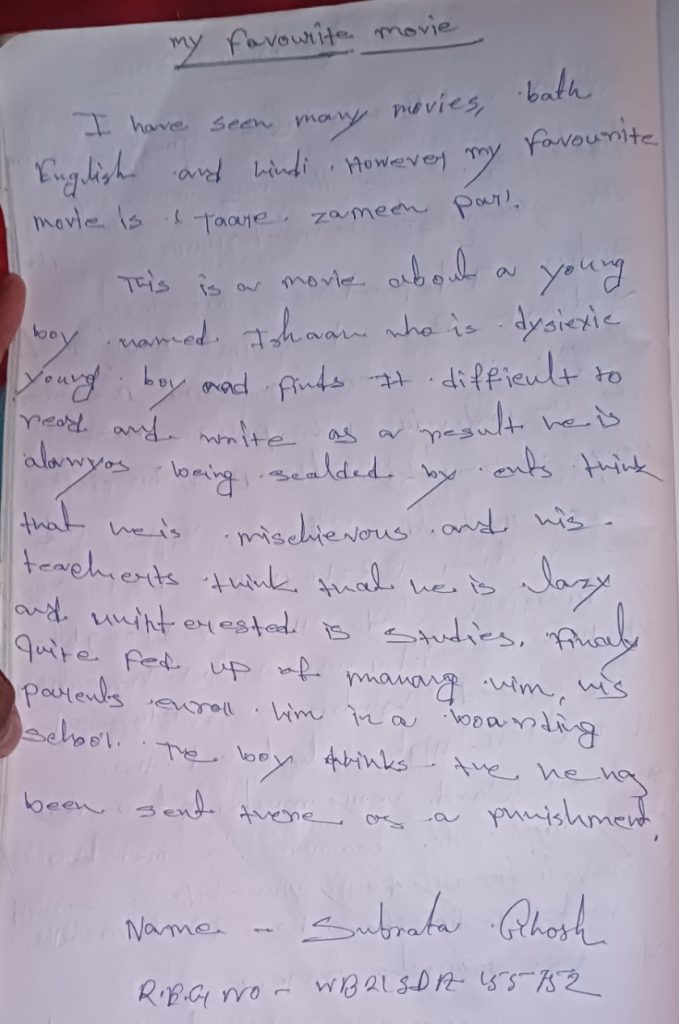 my favourite movie
I have seen many movies, bath
English and hindi. However my favourite
movie is ' Taare. zameen par'.
This is a movie about a young
boy named Ishaan who is dysiexie
young boy and finds It difficult to
read and write as a result he is
alawyas being scalded by ents think
that he is mischievous and his
teachers think that he is lazy
and unint erested is studies. Finaly
Quite Fed up of manang him, his
parents enroll him in a boarding
school. The boy thinks the he
been sent there as a punishment,
Name - Subrata Ghosh
R.E.G NO -